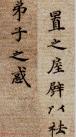 置之座辟以祛
弟子之惑